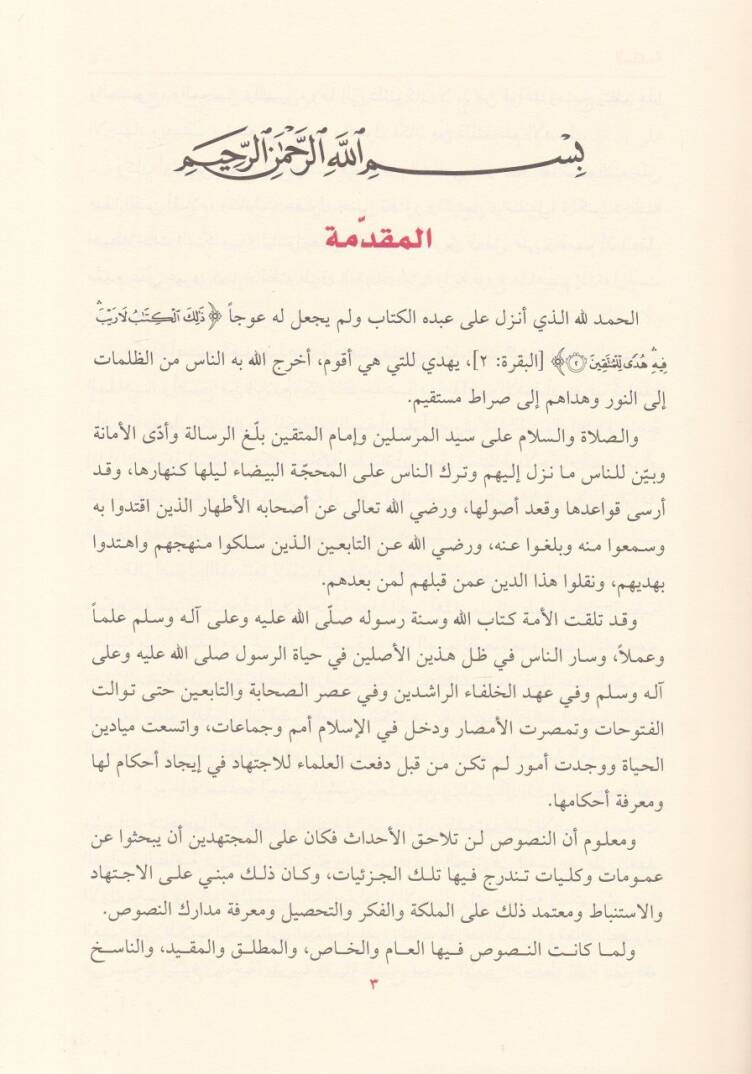 بِسْمِ ٱللَّهِ ٱلرَّحْمَٰنِ ٱلرَّحِيمِ
المقدّمة
الحمد لله الذي أنزل على عبده الكتاب ولم يجعل له عوجاً ﴿ذَٰلِكَ ٱلْكِتَٰبُ لَا رَيْبَۛ
فِيهِۛ هُدًى لِّلْمُتَّقِينَ ۝٢﴾ [البقرة: ٢]، يهدي للتي هي أقوم، أخرج الله به الناس من الظلمات
إلى النور وهداهم إلى صراط مستقيم.
والصلاة والسلام على سيد المرسلين وإمام المتقين بلّغ الرسالة وأدّى الأمانة
وبيّن للناس ما نزل إليهم وترك الناس على المحجّة البيضاء ليلها كنهارها، وقد
أرسى قواعدها وقعد أصولها، ورضي الله تعالى عن أصحابه الأطهار الذين اقتدوا به
وسمعوا منه وبلغوا عنه، ورضي الله عن التابعين الذين سلكوا منهجهم واهتدوا
بهديهم، ونقلوا هذا الدين عمن قبلهم لمن بعدهم.
وقد تلقت الأمة كتاب الله وسنة رسوله صلّى الله عليه وعلى آله وسلم علماً
وعملاً، وسار الناس في ظل هذين الأصلين في حياة الرسول صلى الله عليه وعلى
آله وسلم وفي عهد الخلفاء الراشدين وفي عصر الصحابة والتابعين حتى توالت
الفتوحات وتمصرت الأمصار ودخل في الإسلام أمم وجماعات، واتسعت ميادين
الحياة ووجدت أمور لم تكن من قبل دفعت العلماء للاجتهاد في إيجاد أحكام لها
ومعرفة أحكامها.
ومعلوم أن النصوص لن تلاحق الأحداث فكان على المجتهدين أن يبحثوا عن
عمومات وكليات تندرج فيها تلك الجزئيات، وكان ذلك مبني على الاجتهاد
والاستنباط ومعتمد ذلك على الملكة والفكر والتحصيل ومعرفة مدارك النصوص.
ولما كانت النصوص فيها العام والخاص، والمطلق والمقيد، والناسخ
٣